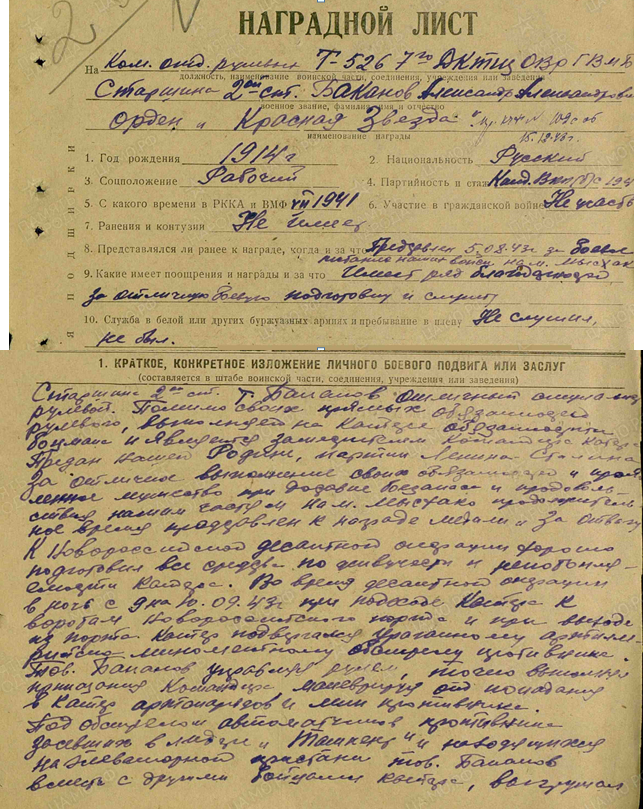 НАГРАДНОЙ ЛИСТ
На Ком. отд. рулевых Т-526 7го ДКТЩ ОВР ГВМБ
должность, наименование воинской части, соединения, учреждения или заведения
Старшина 2ой ст. Баканов Александр Александрович
военное звание, фамилия, имя и отчество
Орден "Красная Звезда"
наименование награды
1. Год рождения 1914 г
2. Национальность Русский
3. Соцположение Рабочий
4. Партийность и стаж Канд. ВКП(б) с 194
5. С какого времени в РККА и ВМФ VII 1941
6. Участие в гражданской войне Не участв
7. Ранения и контузии Не имеет
8. Представлялся ли ранее к награде, когда и за что Представлен 5.08.43г за боевое
питание наших войск на м. Мысхак
9. Какие имеет поощрения и награды и за что Имеет ряд благодарностей
за отличную боевую подготовку и службу
10. Служба в белой или других буржуазных армиях и пребывание в плену Не служил,
не был.
подписи
1. КРАТКОЕ, КОНКРЕТНОЕ ИЗЛОЖЕНИЕ ЛИЧНОГО БОЕВОГО ПОДВИГА ИЛИ ЗАСЛУГ
(составляется в штабе воинской части, соединения, учреждения или заведения)
Старшина 2ой ст. т. Баканов отличный специалист
рулевой. Помимо своих прямых обязанностей
рулевого, выполняет на катере обязанности
боцмана и является заместителем командира катера.
Предан нашей Родине, партии Ленина-Сталина
За отличное выполнение своих обязанностей и прояв
ленное мужество при подвозе боезапаса и продоволь
ствия нашим частям на м. Мысхако продолжитель
ное время представлен к награде медали "За отвагу
К Новороссийской десантной операции хорошо
подготовил все средства по живучести и непотопля-
емости катера. Во время десантной операции
в ночь с 9 на 10.09.43г при подходе катера к
воротам Новороссийского порта и при выходе
из порта катер подвергался ураганному артилле
рийско минометному обстрелу противника.
Тов. Баканов управляя рулем, точно выполнял
приказания командира маневрируя от попадания
в катер артснарядов и мин противника.
Под обстрелом автоматчиков противника
засевших в и находящихся
на элеваторной пристани тов. Баканов
вместе с другими бойцами катера, выгружал